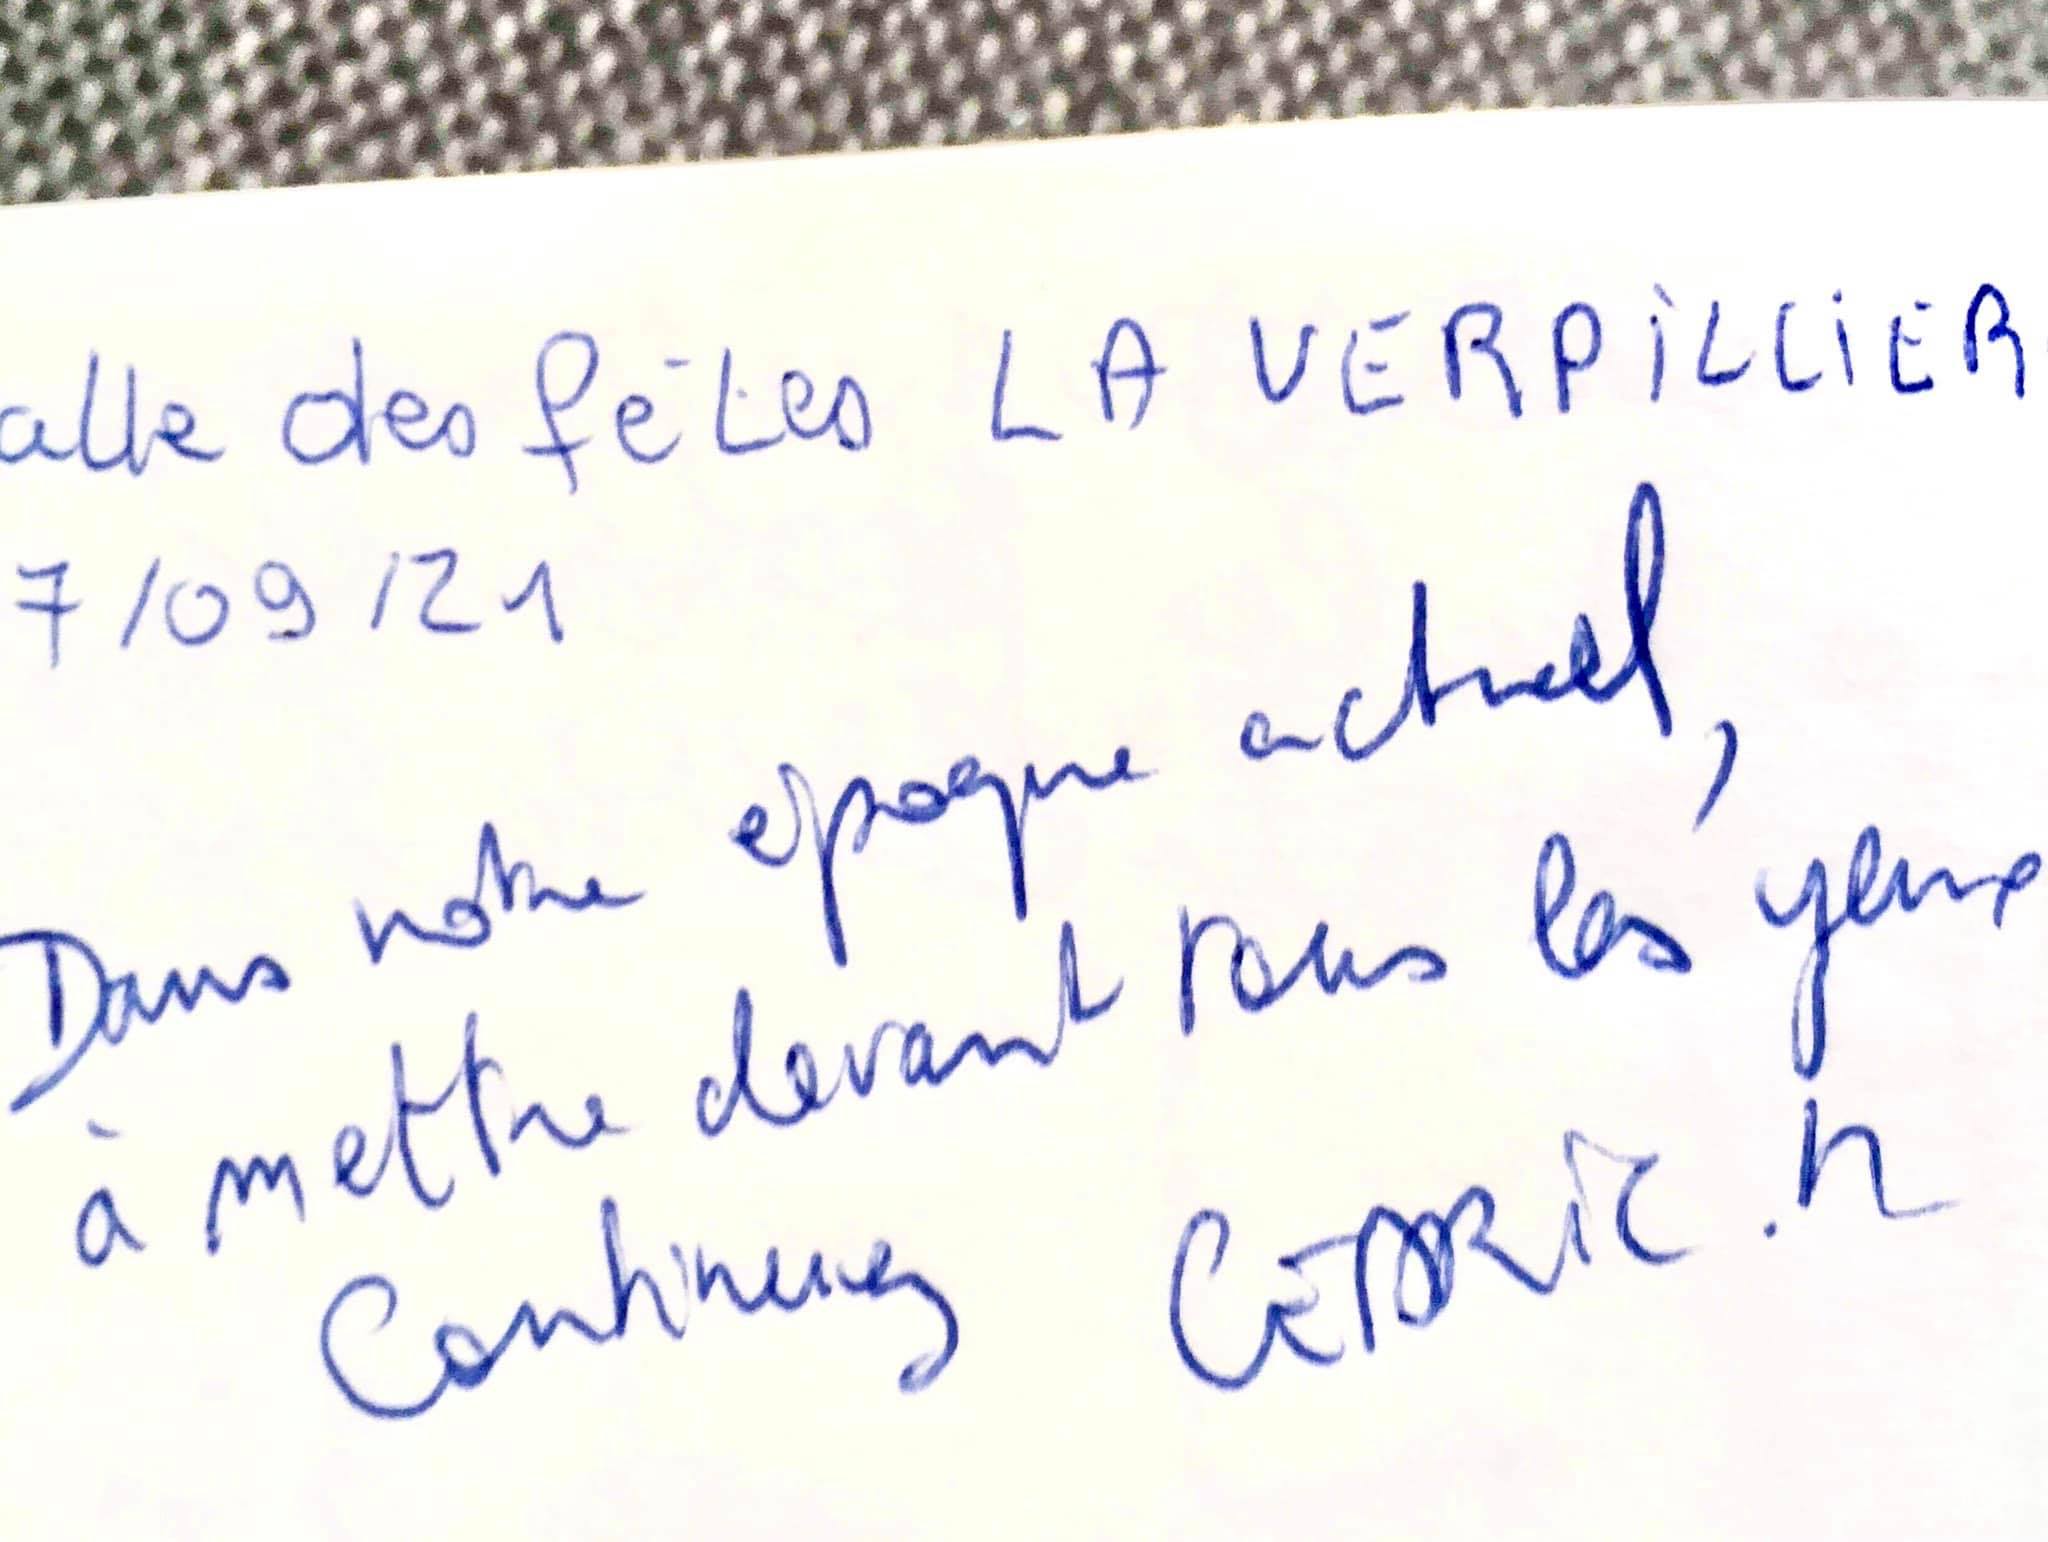 alle des fêtes LA VERPiLLiER
7/09/21
Dans notre epoque actuel,
à mettre devant tous les yeux
Continuez CEDRiC.N